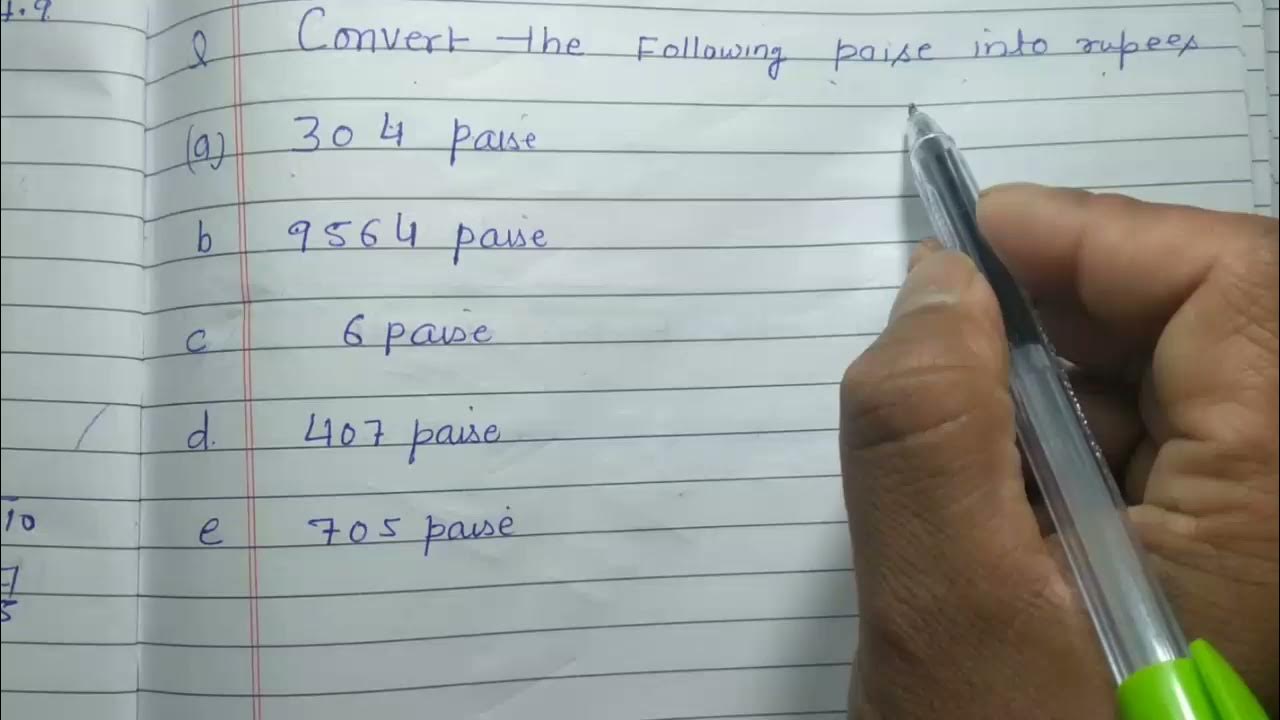 7.9
Q Convert the Following paise into rupees
(a) 304 paise
b 9564 paise
c 6 paise
d. 407 paise
e 705 paise
10
7
5